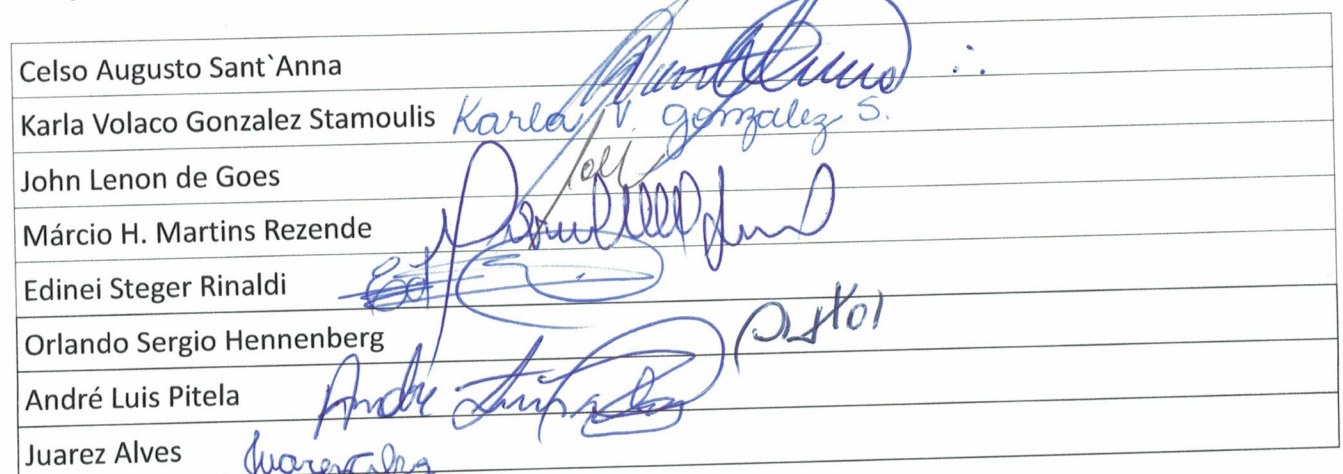 Celso Augusto Sant`Anna
Karla Volaco Gonzalez Stamoulis Karla V. Gonzalez S.
John Lenon de Goes
Márcio H. Martins Rezende
Edinei Steger Rinaldi
Orlando Sergio Hennenberg
André Luis Pitela André Luis
Juarez Alves Juarez Alves